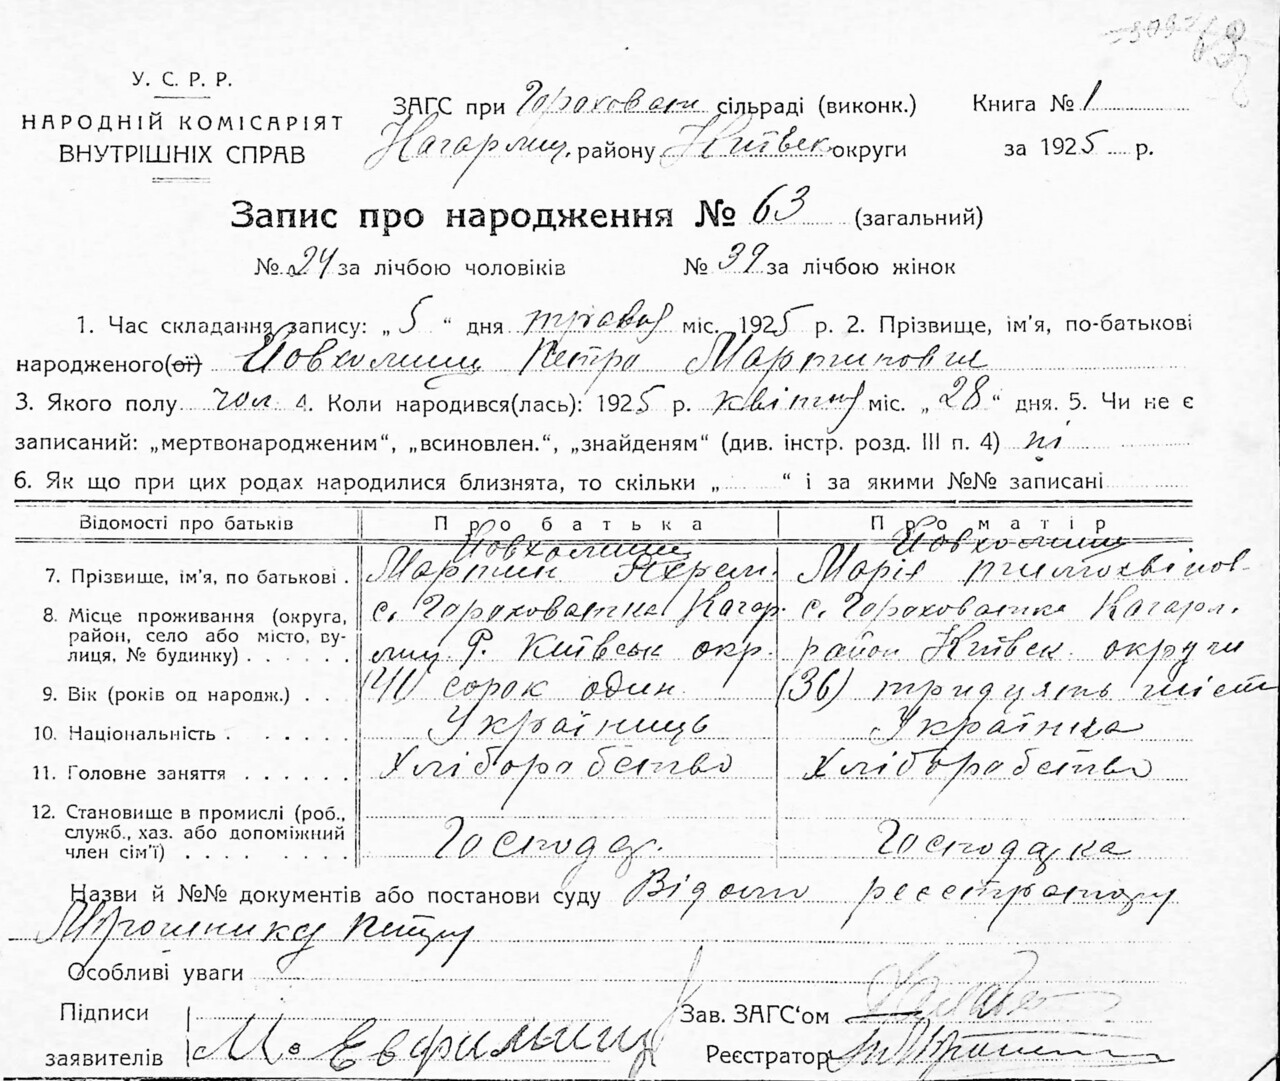 У. С. Р. Р.
НАРОДНІЙ КОМІСАРІЯТ
ВНУТРІШНІХ СПРАВ
ЗАГС при Гороховатс сільраді (виконк.) Книга № 1
Кагарлиц. району Київск округи за 1925 р.
Запис про народження № 63 (загальний)
№ 24 за лічбою чоловіків № 39 за лічбою жінок
1. Час складання запису: „ 5 “ дня травня міс. 1925 р. 2. Прізвище, ім'я, по-батькові
народженого(ої) Йовхомиць Петро Мартинович
3. Якого полу чол 4. Коли народився(лась): 1925 р. квітня міс. „ 28 “ дня. 5. Чи не є
записаний: „мертвонародженим“, „всиновлен.“, „знайденям“ (див. інстр. розд. III п. 4) ні
6. Як що при цих родах народилися близнята, то скільки „ “ і за якими №№ записані
Відомості про батьків Про батька Про матір
7. Прізвище, ім'я, по батькові . Мартин Марія
8. Місце проживання (округа, район, село або місто, вулиця, № будинку) . . . . . . с. Гороховатка Кагарлиц. Р. Київськ окр. с. Гороховатка Кагарл. район Київск округи
9. Вік (років од народж.) . . (41) сорок один (36) тридцять шість
10. Національність . . . . . . Українець Українка
11. Головне заняття . . . . . . Хлібоработво Хлібоработво
12. Становище в промислі (роб., служб., хаз. або допоміжний член сім'ї) . . . . . . . Господар. Господарка
Назви й №№ документів або постанови суду Відомо реєстратору
Мірошнику Петру
Особливі уваги
Підписи
заявителів М. Евфимиць
Зав. ЗАГС‘ом
Реєстратор